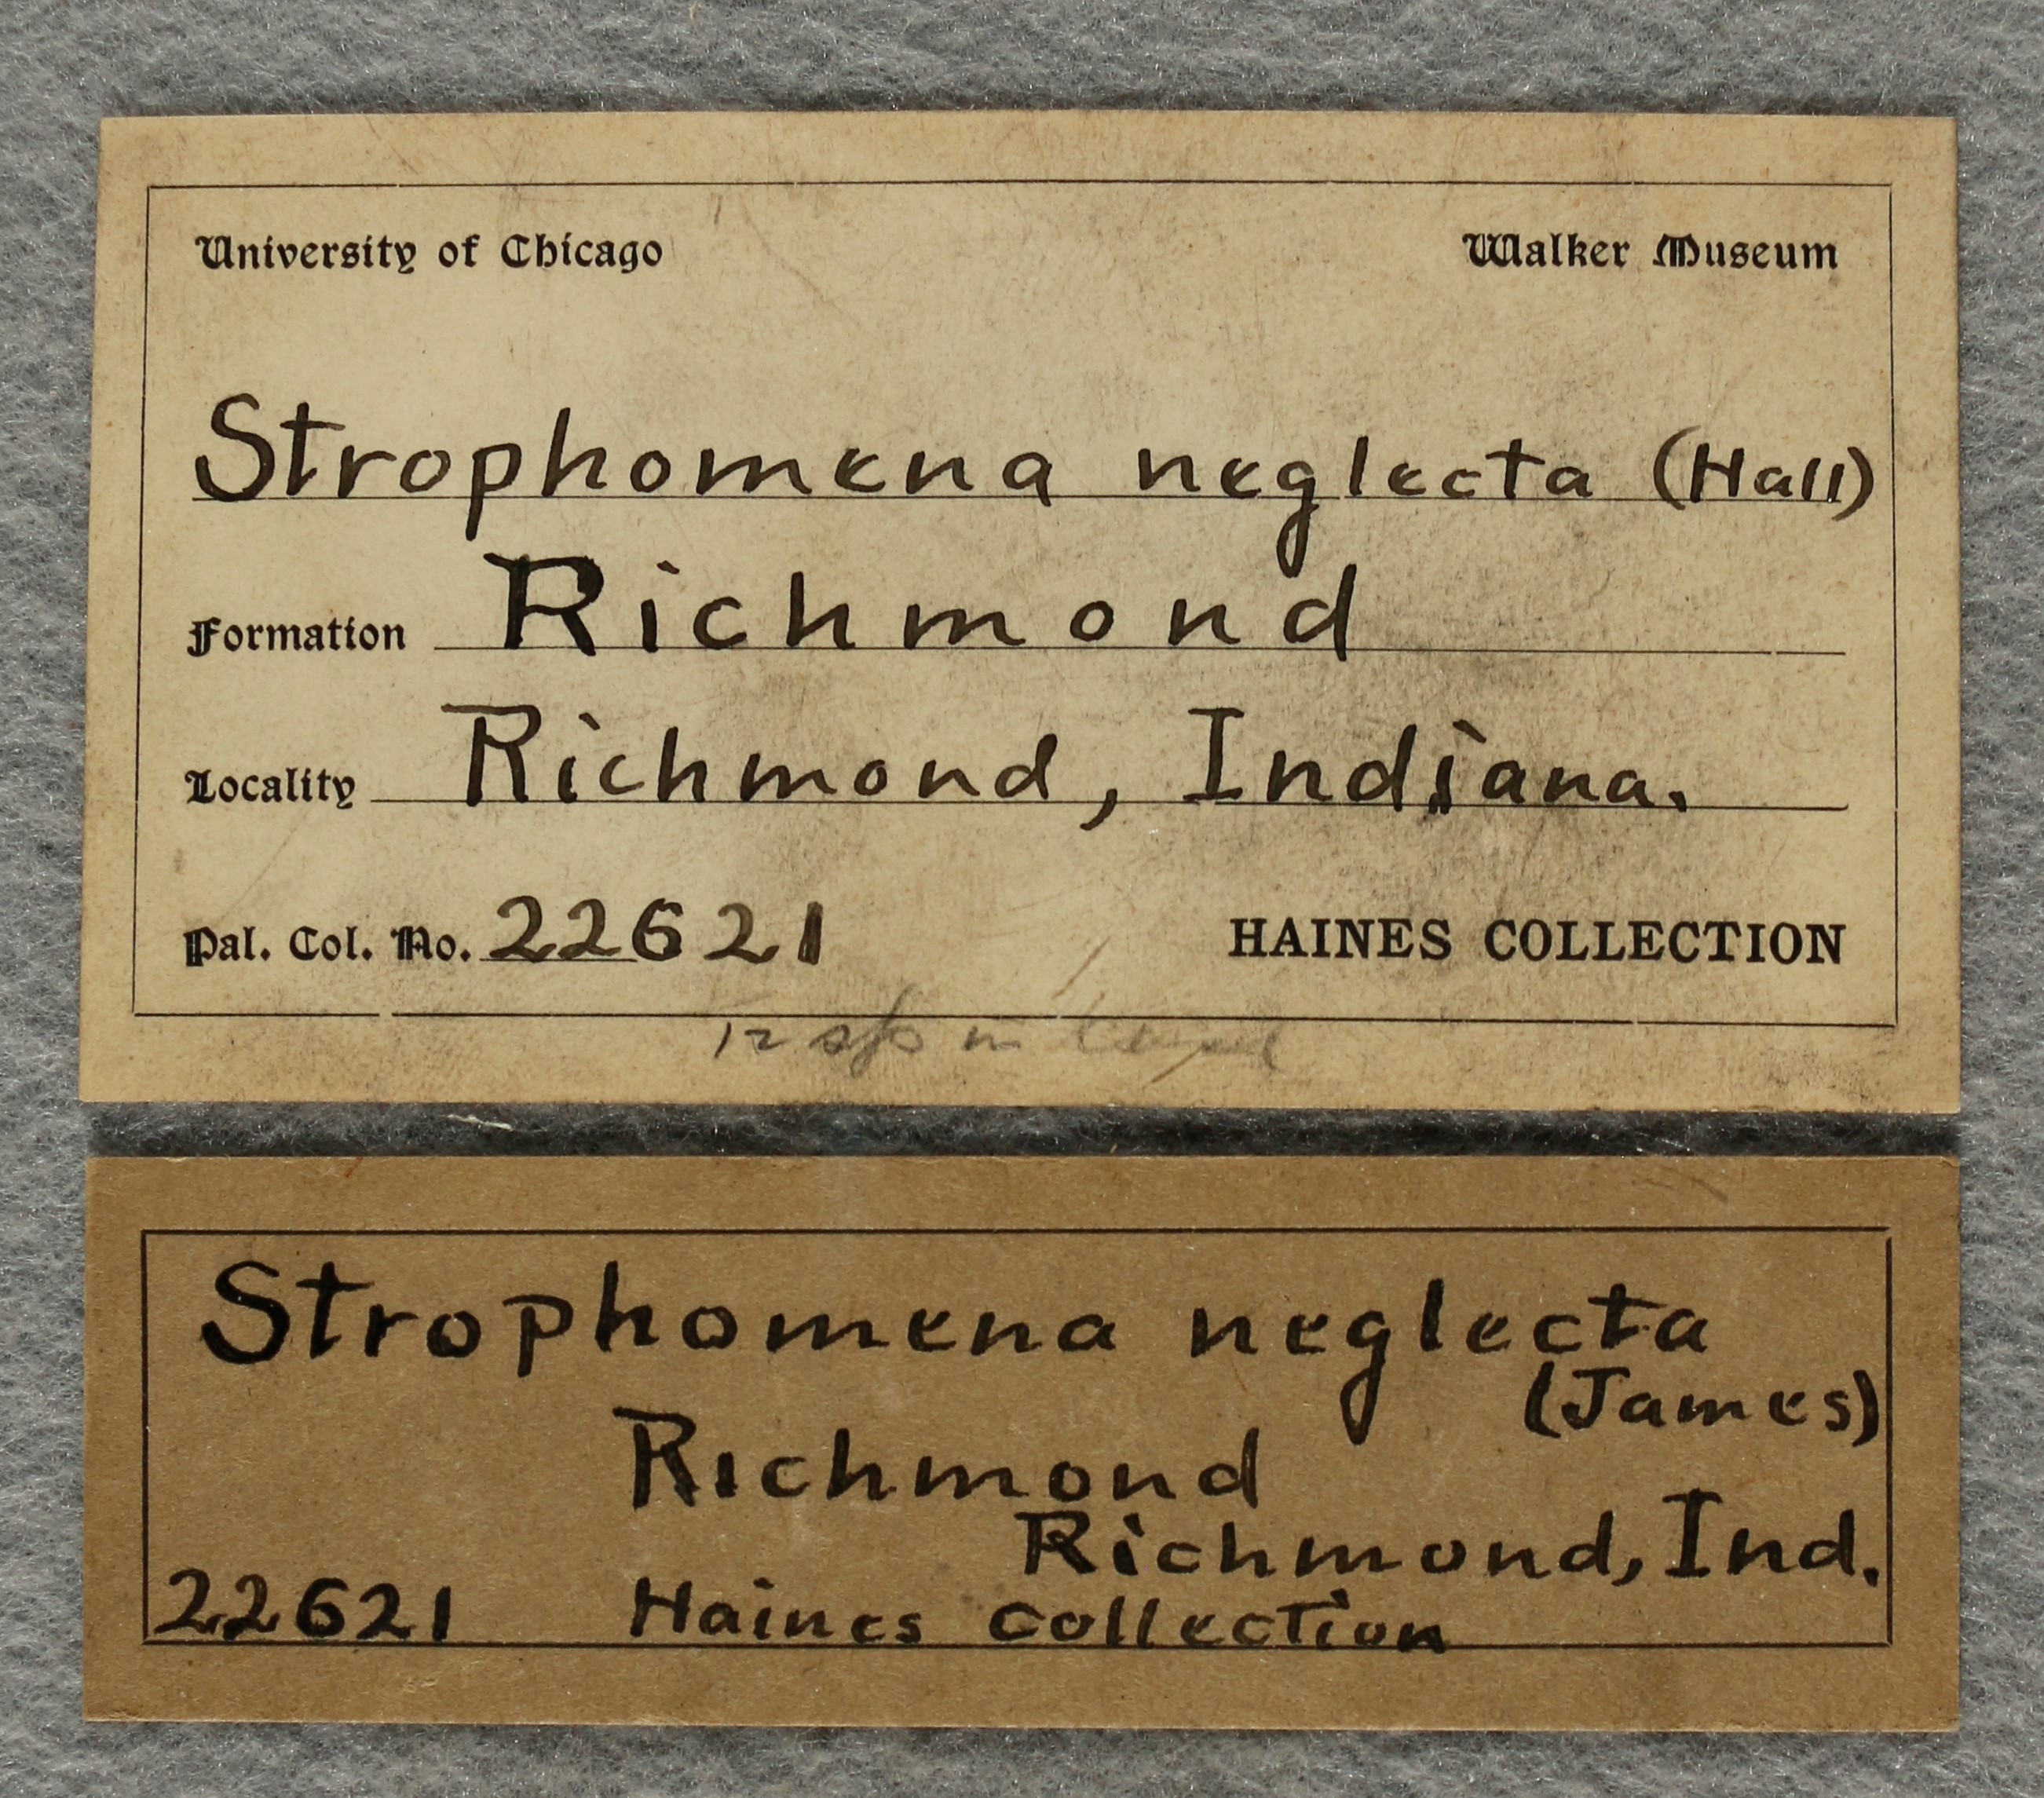 University of Chicago Walker Museum
Strophomena neglecta (Hall)
Formation Richmond
Locality Richmond, Indiana.
Pal. Col. No. 22621 HAINES COLLECTION
12 in
Strophomena neglecta
(James)
Richmond
Richmond, Ind.
22621 Haines Collection